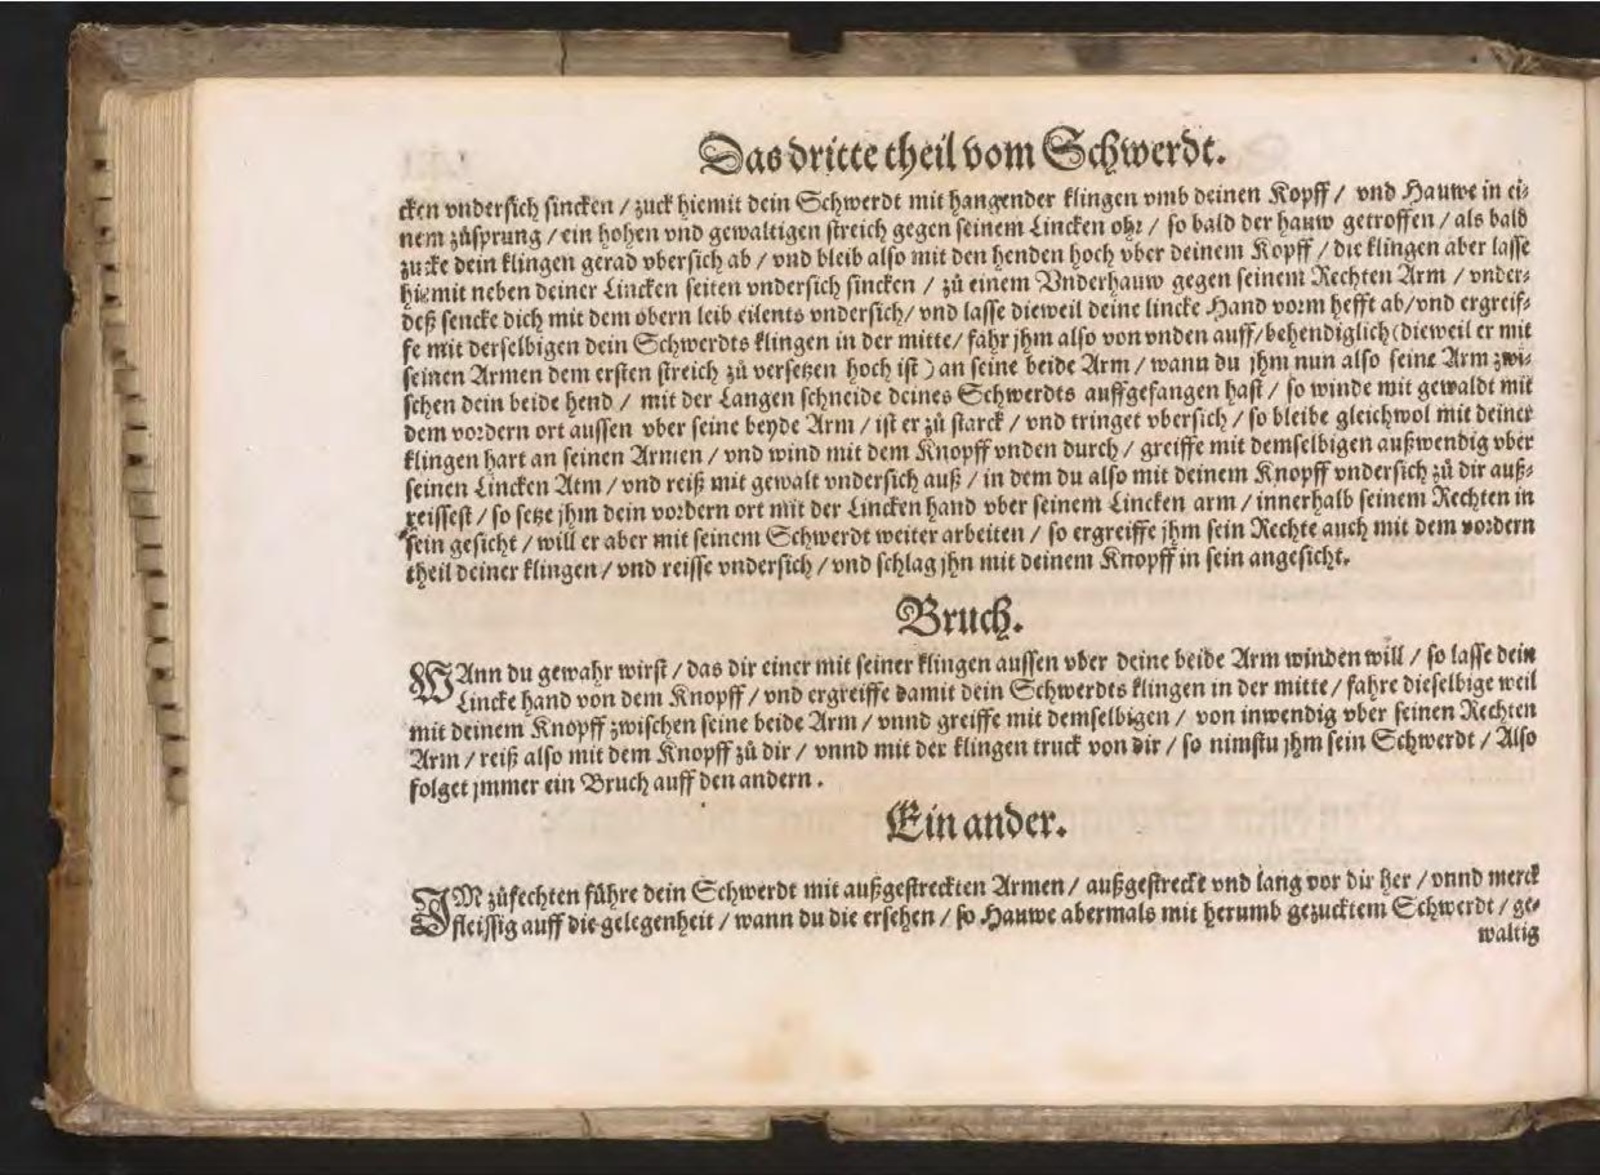 Das dritte theil vom Schwerdt.
cken vndersich sincken / zuck hiemit dein Schwerdt mit hangender klingen vmb deinen Kopff / vnd Hauwe in ei⸗
nem zůsprung / ein hohen vnd gewaltigen streich gegen seinem Lincken ohr / so bald der hauw getroffen / als bald
zucke dein klingen gerad vbersich ab / vnd bleib also mit den henden hoch vber deinem Kopff / die klingen aber lasse
hiemit neben deiner Lincken seiten vndersich sincken / zů einem Vnderhauw gegen seinem Rechten Arm / vnder⸗
deß sencke dich mit dem obern leib eilents vndersich / vnd lasse dieweil deine lincke Hand vorm hefft ab / vnd ergreif⸗
fe mit derselbigen dein Schwerdts klingen in der mitte / fahr jhm also von vnden auff / behendiglich (dieweil er mit
seinen Armen dem ersten streich zů versetzen hoch ist) an seine beide Arm / wann du jhm nun also seine Arm zwi⸗
schen dein beide hend / mit der Langen schneide deines Schwerdts auffgefangen hast / so winde mit gewaldt mit
dem vordern ort aussen vber seine beyde Arm / ist er zů starck / vnd tringet vbersich / so bleibe gleichwol mit deiner
klingen hart an seinen Armen / vnd wind mit dem Knopff vnden durch / greiffe mit demselbigen außwendig vber
seinen Lincken Atm / vnd reiß mit gewalt vndersich auß / in dem du also mit deinem Knopff vndersich zů dir auß⸗
reissest / so setze jhm dein vordern ort mit der Lincken hand vber seinem Lincken arm / innerhalb seinem Rechten in
sein gesicht / will er aber mit seinem Schwerdt weiter arbeiten / so ergreiffe jhm sein Rechte auch mit dem vordern
theil deiner klingen / vnd reisse vndersich / vnd schlag jhn mit deinem Knopff in sein angesicht.
Bruch.
WAnn du gewahr wirst / das dir einer mit seiner klingen aussen vber deine beide Arm winden will / so lasse dein
Lincke hand von dem Knopff / vnd ergreiffe damit dein Schwerdts klingen in der mitte / fahre dieselbige weil
mit deinem Knopff zwischen seine beide Arm / vnnd greiffe mit demselbigen / von inwendig vber seinen Rechten
Arm / reiß also mit dem Knopff zů dir / vnnd mit der klingen truck von dir / so nimstu jhm sein Schwerdt / Also
folget jmmer ein Bruch auff den andern.
Ein ander.
IM zůfechten führe dein Schwerdt mit außgestreckten Armen / außgestreckt vnd lang vor dir her / vnnd merck
fleissig auff die gelegenheit / wann du die ersehen / so Hauwe abermals mit herumb gezucktem Schwerdt / ge⸗
waltig